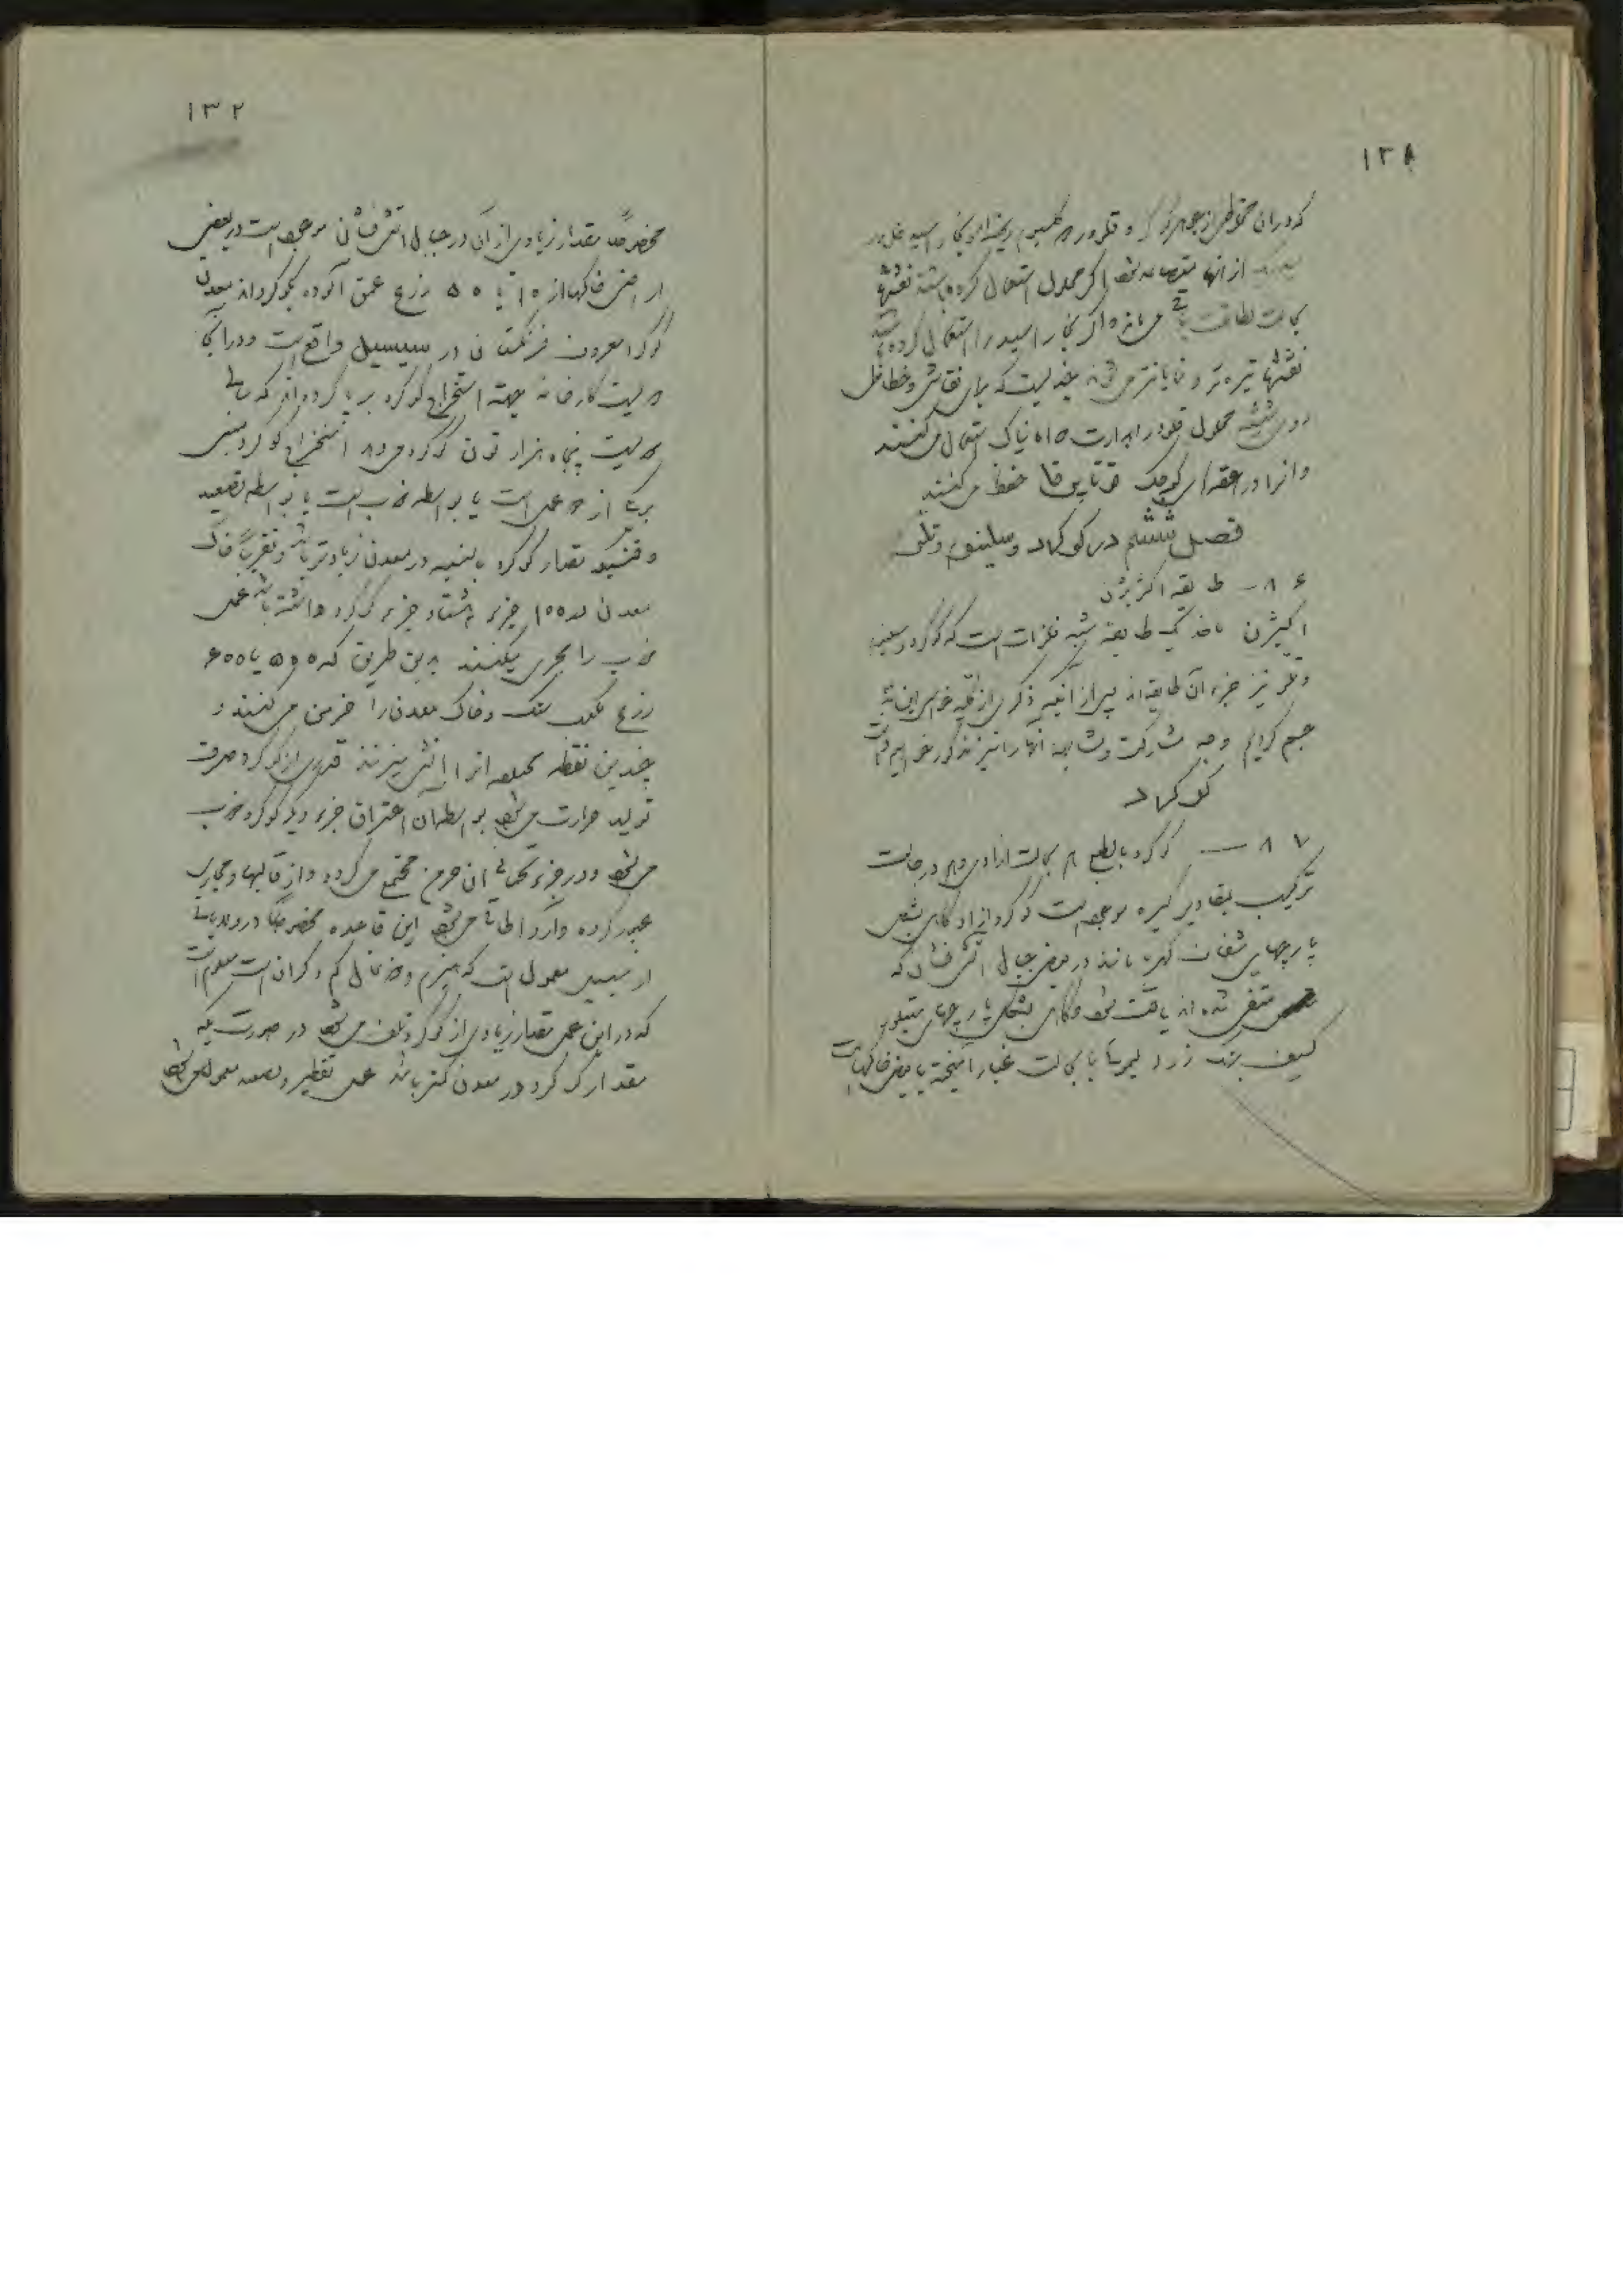 ۱۳۸
که در ان مخلوطی از جوهر گوگرد و فلرور کلسیوم ریخته اند بخار اسید
از انها متصاعد میشود اکر محلول استعمال کرده باشند نقشها
بحالت باقی میماند و اکر بخار اسید را استعمال کرده باشند
نقشها تیره تر و نمایانتر میشوند چندیست که برای نقاشی و خطاطی
روی شیشه محلول فلورایدارت دامونیاک استعمال میکنند
و انرا در کوچک کوتاپرقا حفظ میکنند
فصل ششم در کوکرد و سلینوم و تلور
۸۶ – طایفه اکثیژن
اکثیژن ماخذ یک طایفه شبه فلزات است که گوگرد و سلینوم
و تلور نیز جزء آن طایفه اند پس از انکه ذکری از
جسم کردیم وجه مشارکت و مشابهت انها را نیز مذکور خواهیم داشت
کوکرد
۸۷ — گوگرد بالطبع هم بحالت ازادی و هم در حالت
ترکیب بمقادیر کثیره موجود است گوگرد ازاد گاهی بشکل
پارچهای شفاف کهربا مانند در بعضی جبال اتش فشان که
منطفی شده اند یافت میشود و گاهی بشکل پارچهای متبلور
کثیف برنگ زرد لیمویی یا بحالت غبار امیخته با بعضی خاکهاست
۱۳۲
مخصوصاً مقدار زیادی از آن در جبال اتش فشانی موجود است در بعضی
اراضی خاکها از ۱۰ تا ۵۰ زرع عمق آلوده بگوگرداند معدن
گوگرد معروف فرنگستان در سیسیل واقع است و در آنجا
دویست کارخانه بجهته استخراج گوگرد برپا کرده اند که سالی
دویست پنجاه هزار تون گوگرد میدهد استخراج گوگرد مبنی
بر یکی از دو عمل است یا بواسطه ذوب است یا بواسطه تصعید
وقتیکه مقدار گوگرد بالنسبه در معدن زیادتر باشد و تقریباً خاک
معدن در ۱۰۰ جزء هشتاد جزء گوگرد داشته باشد عمل
ذوب را مجری میکنند بدین طریق که ۵۰۰ یا ۶۰۰
زرع مکعب سنگ و خاک معدن را خرمن میکنند و
چندین نقطه مختلفه انرا اتش میزنند قدری از گوگرد صرف
تولید حرارت میشود بواسطه آن احتراق جزء دیگر گوگرد ذوب
میشود و در جزء تحتانی ان خرمن مجتمع میگردد و از قالبها و مجاری
عبور کرده وارد اطاقی میشود این قاعده مخصوصاً در ولایاتی
از سیسیل معمول است که هیزم و ذغال کم و گران است معلوم است
که در این عمل مقدار زیادی از گوگرد تلف میشود در صورتیکه
مقدار گوگرد در معدن کمتر باشد عمل تقطیر و تصعید معمول میشود